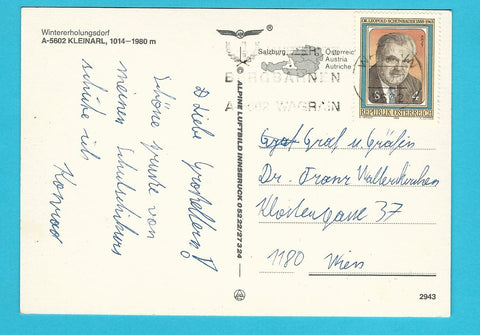 Wintererholungsdorf
A-5602 KLEINARL, 1014–1980 m
Liebe Großeltern!
Schöne Grüße von
meinem Schulschikurs
schicke ich
Konrad
© ALPINE LUFTBILD INNSBRUCK 05222/27324
Salzburg
Österreich
Austria
Autriche
BERGBAHNEN
WAGRAIN
DR. LEOPOLD SCHÖNBAUER 1888-1963
S 4
REPUBLIK ÖSTERREICH
Graf u. Gräfin
Dr. Franz Walterskirchen
Klostergasse 37
1180 Wien
2943